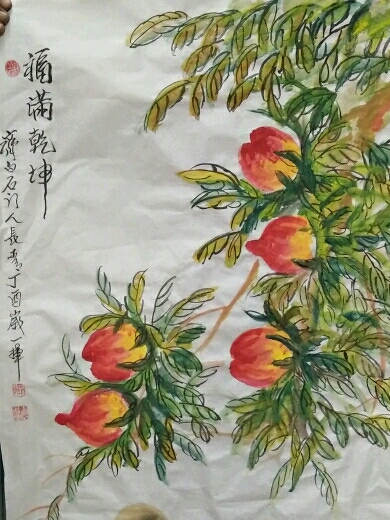 福满乾坤
齐白石门人長青丁酉歲一揮